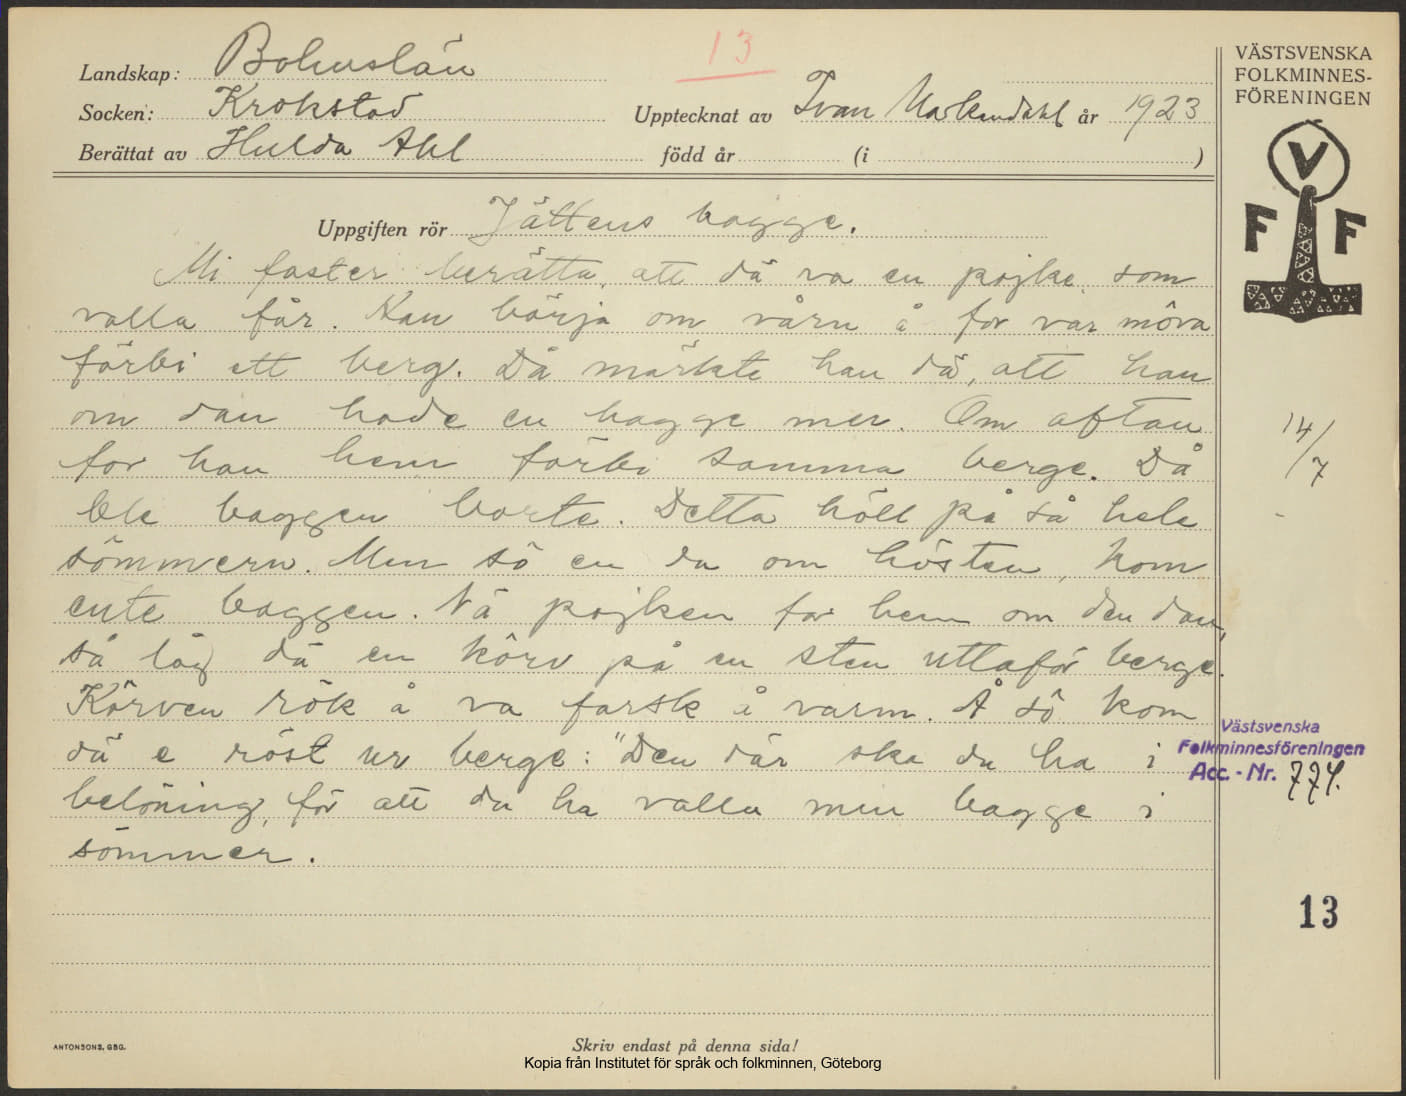 13
Landskap: Bohuslän
Socken: Krokstad
Upptecknat av Ivan Markendahl år 1923
Berättat av Hulda Ahl född år (i )
VÄSTSVENSKA
FOLKMINNES-
FÖRENINGEN
V
F F
Uppgiften rör Jättens bagge.
Mi faster berätta, att dä va en pojke, som
valla får. Han börja om vårn å for var môra
förbi ett berg. Då märkte han då, att han
om dan hade en bagge mer. Om aftan
for han hem förbi samma berge. Då
ble baggen borte. Detta höll på så hele
sômmern. Men sô en da om hösten, kom
ente baggen. Nä pojken for hem om den dan,
så låg dä en kôrv på en sten uttaför berge.
Kôrven rök å va farsk å varm. Å sô kom
dä e röst ur berge: "Den där ska du ha i
belöning, för att du ha valla min bagge i
sômmer.
14/7
Västsvenska
Folkminnesföreningen
Acc. - Nr. 774.
13
ANTONSONS, GBG.
Skriv endast på denna sida!
Kopia från Institutet för språk och folkminnen, Göteborg